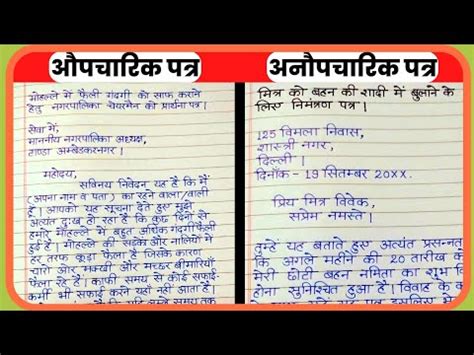 औपचारिक पत्र
मोहल्ले में फैली गंदगी को साफ कराने
हेतु नगरपालिका चेयरमैन को प्रार्थना पत्र।
सेवा में,
माननीय नगरपालिका अध्यक्ष,
टाण्डा अम्बेडकरनगर।
महोदय,
सविनय निवेदन यह है कि मैं
(अपना नाम व पता) का रहने वाला/वाली
हूँ। आपको यह सूचना देते हुए मुझे
अत्यंत दुःख हो रहा है कि कुछ दिनों से
हमारे मोहल्ले में बहुत अधिक गंदगी फैली
हुई है। मोहल्ले की सड़कों और नालियों में
हर तरफ कूड़ा फैला है जिसके कारण
चारो ओर मक्खी और मच्छर बीमारियाँ
फैला रहे हैं। काफी समय से कोई सफाई-
कर्मी भी सफाई करने यहाँ नहीं आता है।
अनौपचारिक पत्र
मित्र को बहन की शादी में बुलाने के
लिए निमंत्रण पत्र।
125 विमला निवास,
शास्त्री नगर,
दिल्ली।
दिनाँक - 19 सितम्बर 20xx.
प्रिय मित्र विवेक,
सप्रेम नमस्ते।
तुम्हें यह बताते हुए अत्यंत प्रसन्नत
कि अगले महीने की 20 तारीख क
मेरी छोटी बहन नमिता का शुभ वि
होना सुनिश्चित हुआ है। विवाह के क